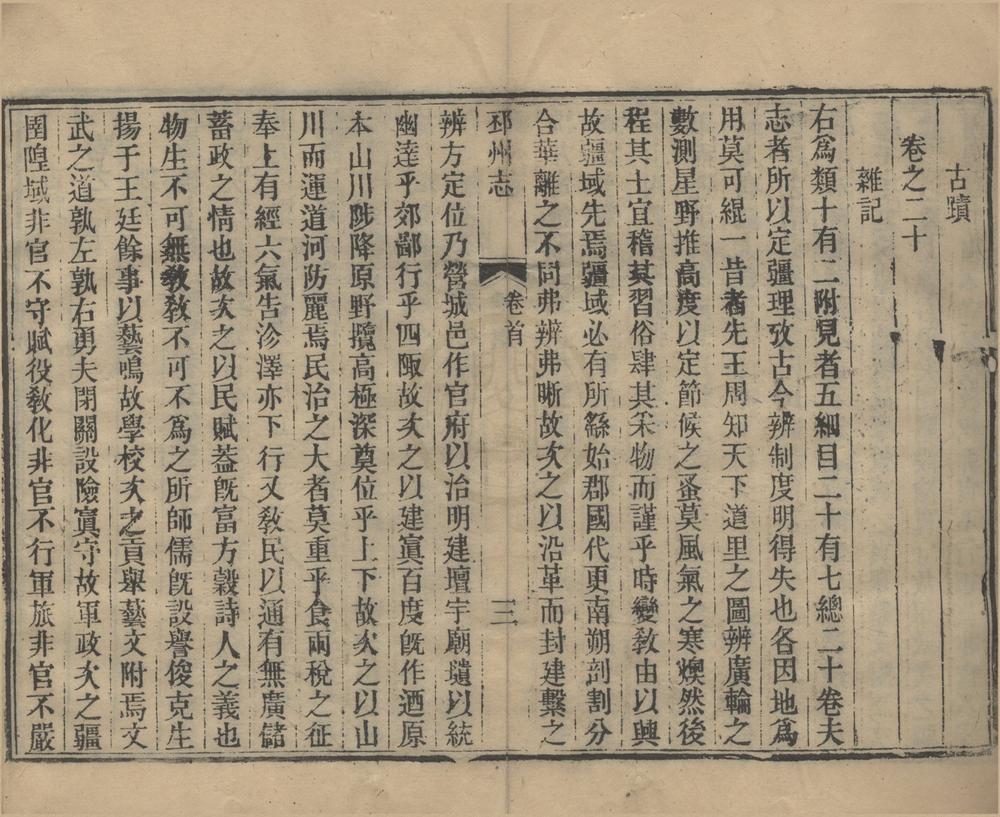 古蹟
卷之二十
雜記
右爲類十有二附見者五細目二十有七總二十卷夫
志者所以定疆理攷古今辨制度明得失也各因地爲
用莫可緄一昔者先王周知天下道里之圖辨廣輪之
數測星野推高度以定節候之蚤莫風氣之寒燠然後
程其土宜稽其習俗肆其采物而謹乎時變教由以興
故疆域先焉疆域必有所繇始郡國代更南朔剖割分
合華離之不同弗辨弗晰故次之以沿革而封建繫之
邳州志
卷首
三
辨方定位乃營城邑作官府以治明建壇宇廟壝以統
幽達乎郊鄙行乎四陬故次之以建寘百度旣作迺原
本山川陟降原野攬高極深奠位乎上下故次之以山
川而運道河防麗焉民治之大者莫重乎食兩稅之征
奉上有經六氣告沴澤亦下行又敎民以通有無廣儲
蓄政之情也故次之以民賦葢旣富方穀詩人之義也
物生不可無敎敎不可不爲之所師儒旣設譽俊克生
揚于王廷餘事以藝鳴故學校次之貢舉藝文附焉文
武之道孰左孰右勇夫閉關設險寘守故軍政次之疆
圉隍域非官不守賦役敎化非官不行軍旅非官不嚴